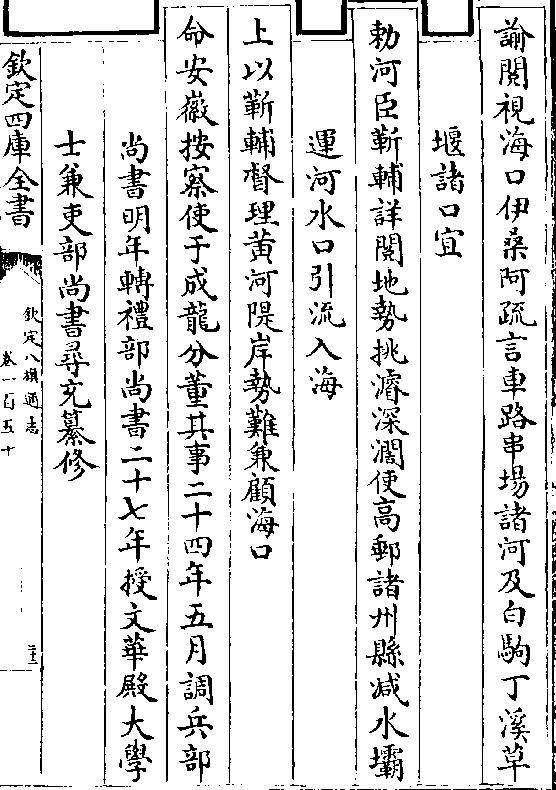 諭閱視海口伊桑阿疏言車路串場諸河及白駒丁溪草
堰諸口宜
勅河臣靳輔詳閱地勢挑濬深濶使高郵諸州縣减水壩
運河水口引流入海
上以靳輔督理黄河隄岸勢難兼顧海口
命安徽按察使于成龍分董其事二十四年五月調兵部
尚書明年轉禮部尚書二十七年授文華殿大學
士兼吏部尚書尋充纂修
欽定四庫全書
欽定八旗通志
卷一百五十